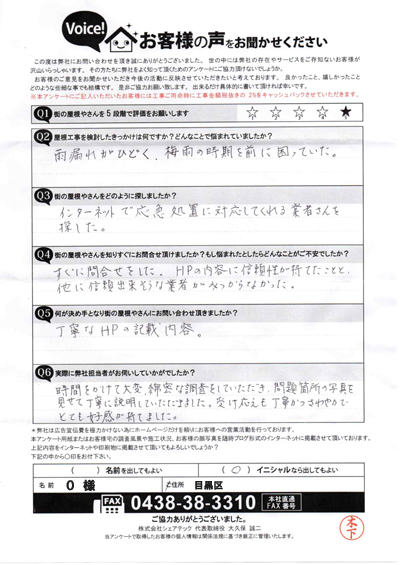 Voice!
お客様の声をお聞かせください
この度は弊社にお問い合わせを頂き誠にありがとうございました。世の中には弊社の存在やサービスをご存知ないお客様が
沢山いらっしゃいます。その方たちに弊社をよく知って頂くためのアンケートにご協力頂けないでしょうか。
お客様のご意見をお聞かせいただき今後の活動に反映させていただきたいと考えております。良かったこと、嬉しかったこと
どのような些細な事でも結構です。是非ご協力お願い致します。出来るだけ具体的に書いて頂ければ幸いです。
※本アンケートにご記入いただいたお客様には工事ご用命時に工事金額税抜きの2%をキャッシュバックさせていただきます。
Q1 街の屋根やさんを5段階で評価をお願いします
☆ ☆ ☆ ☆ ★
Q2 屋根工事を検討したきっかけは何ですか?どんなことで悩まれていましたか?
雨漏れがひどく、梅雨の時期を前に困っていた。
Q3 街の屋根やさんをどのように探しましたか?
インターネットで応急処置に対応してくれる業者さんを
探した。
Q4 街の屋根やさんを知りすぐにお問合せ頂けましたか?もし悩まれたとしたらどんなことがご不安でしたか?
すぐに問合せをした。HPの内容に信頼性が持てたことと、
他に信頼出来そうな業者がみつからなかった。
Q5 何が決め手となり街の屋根やさんにお問い合わせ頂けましたか?
丁寧なHPの記載内容。
Q6 実際に弊社担当者がお伺いしていかがでしたか?
時間をかけて大変、綿密な調査をしていただき、問題箇所の写真を
見せて丁寧に説明していただきました。受け応えも丁寧かつさわやかで
とても好感が持てました。
※弊社は広告宣伝費を極力かけない為にホームページだけを頼りにお客様への営業活動を行っております。
本アンケート用紙またはお客様宅の調査風景や施工状況、お客様の顔写真を随時ブログ形式のインターネットに掲載させて頂いております。
上記内容をインターネットや印刷物に掲載させて頂いてもよろしいでしょうか?
下記の中から○印をお付下さい。
( )名前を出してもよい (○)イニシャルなら出してもよい
名前 O 様 ご住所 目黒区
FAX 0438-38-3310 本社直通 FAX番号
ご協力ありがとうございました。
株式会社シェアテック 代表取締役 大久保 誠二
当アンケートで取得したお客様の個人情報は関係法規に基づき厳正に管理いたします。
木下